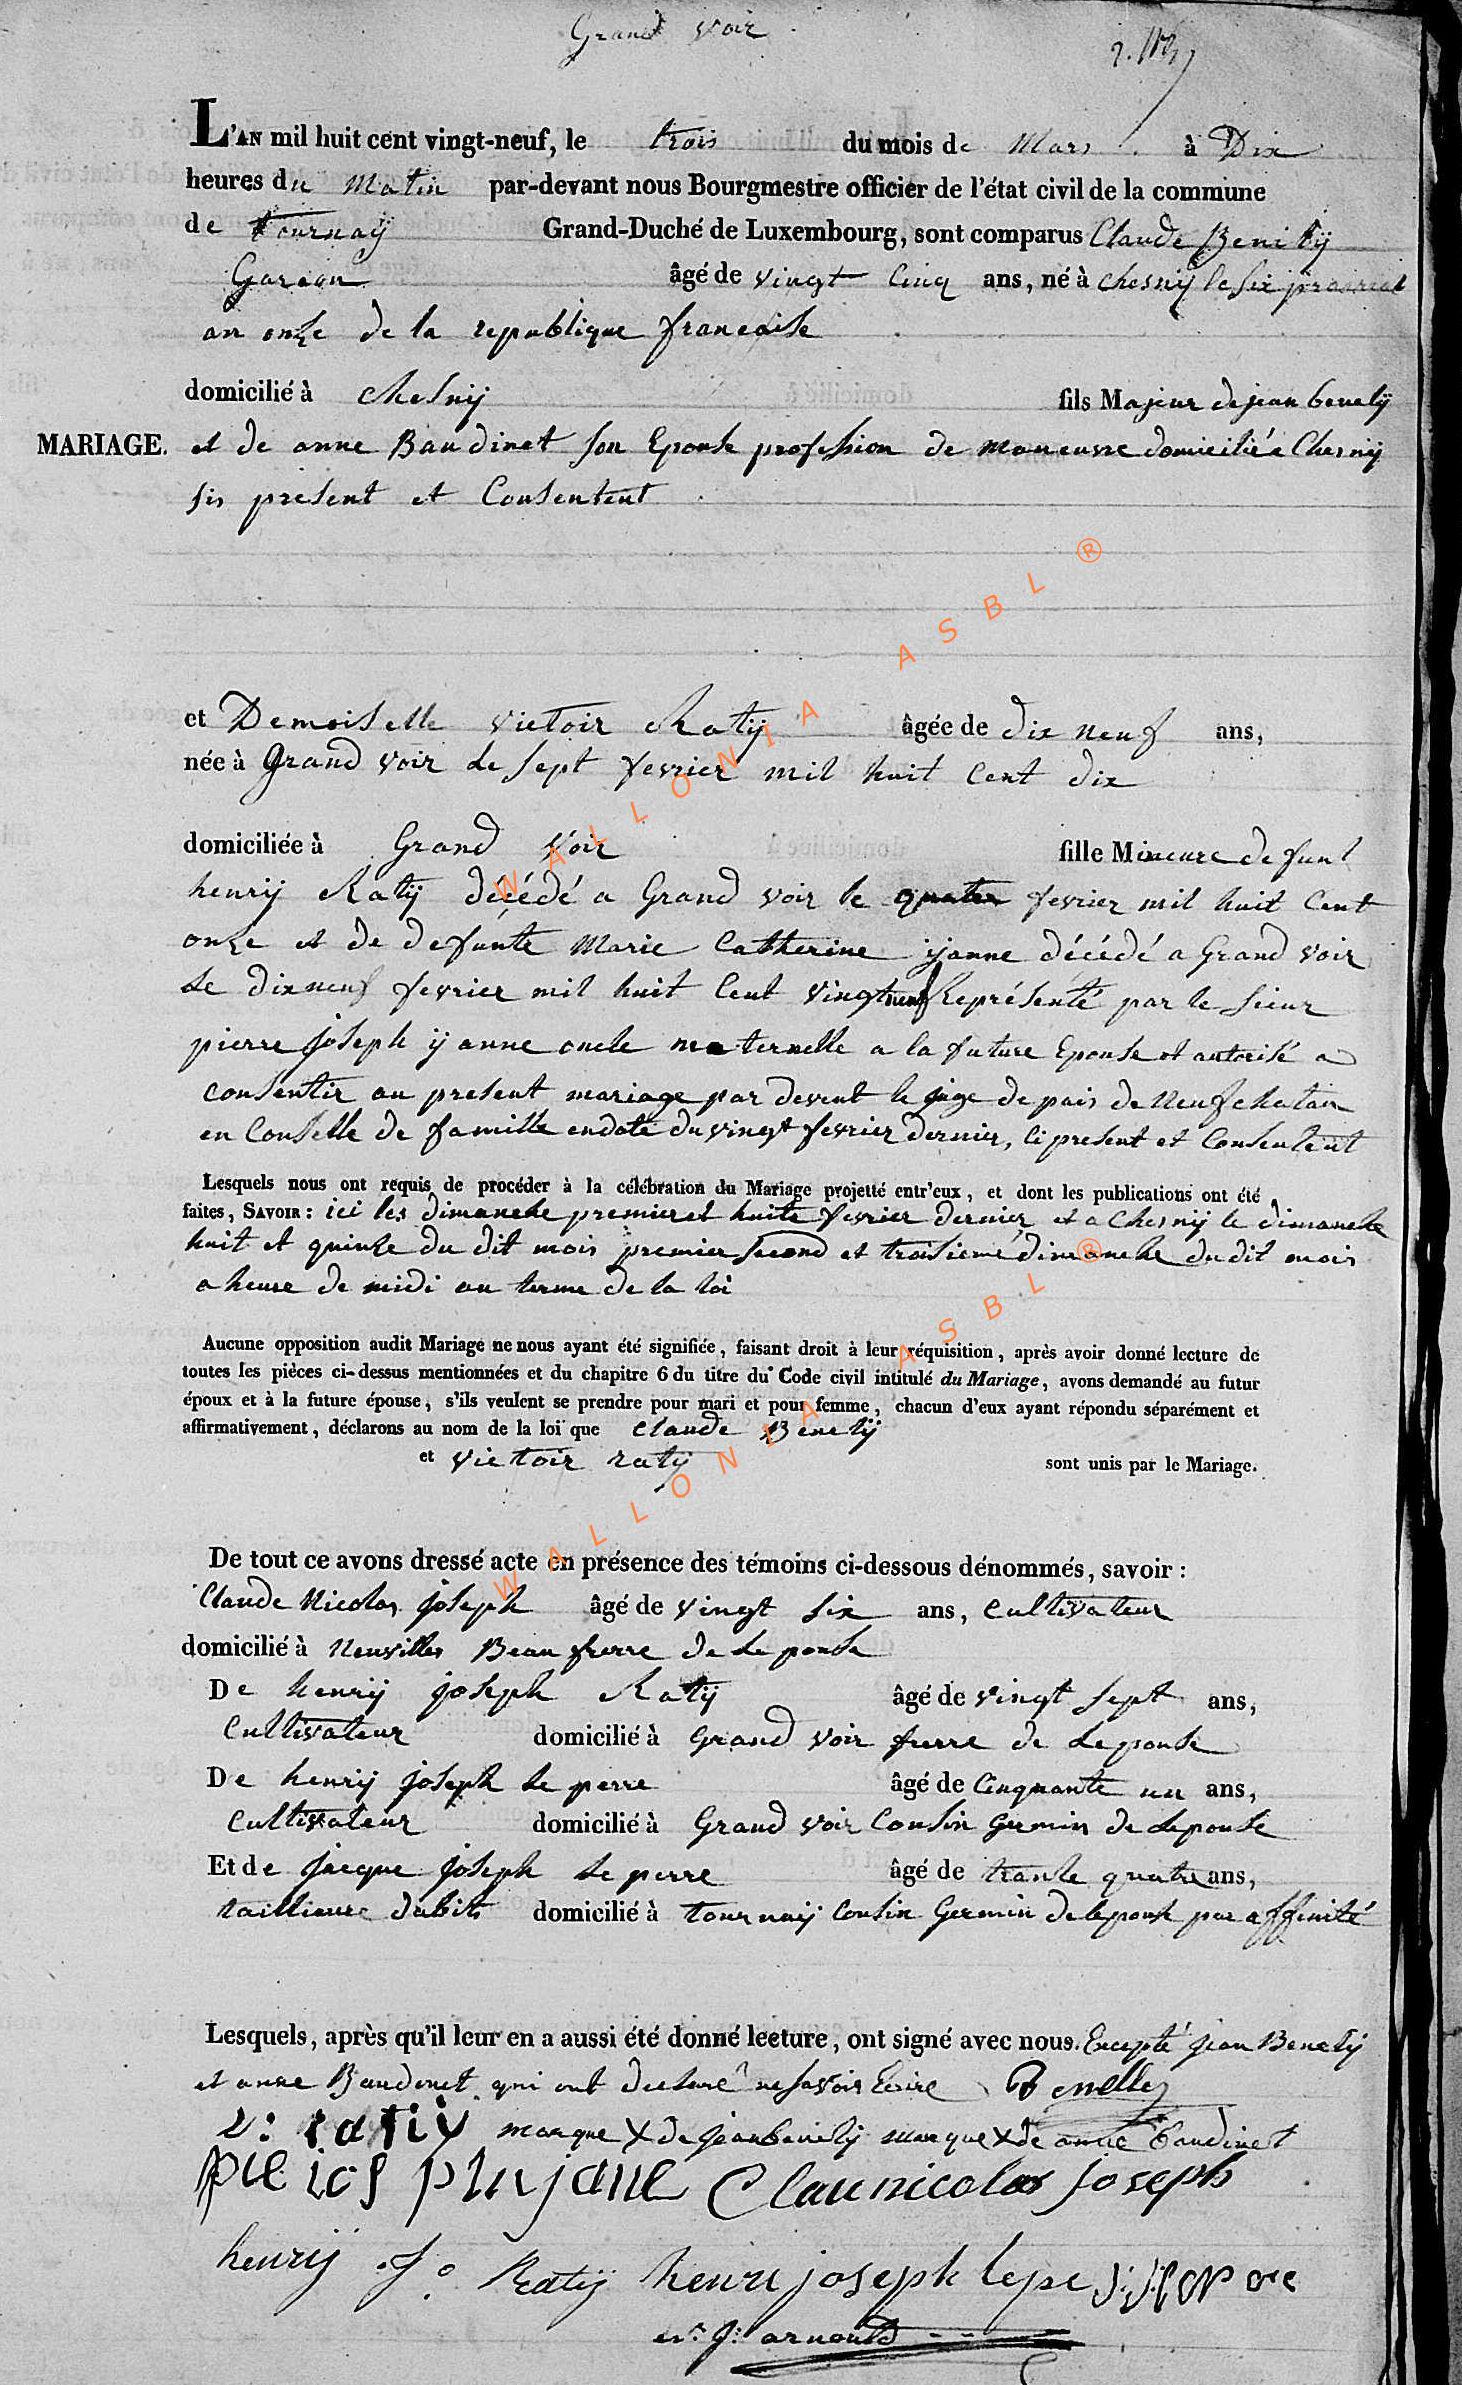 Grand voir
L'AN mil huit cent vingt-neuf, le trois du mois de Mars à Dix
heures du Matin par-devant nous Bourgmestre officier de l'état civil de la commune
de tournaÿ Grand-Duché de Luxembourg, sont comparus Claude Benitÿ
Garçon âgé de vingt Cinq ans, né à chesnÿ le six prairial
an onze de la republique francaise
domicilié à chesnÿ fils Majeur de jean benelÿ
MARIAGE. et de anne Baudinet son Epouse profession de maneuvre domiciliée Chesnÿ
sis present et Consentent
et Demoiselle victoir Ratÿ âgée de dix neuf ans,
née à Grand voir le sept fevrier mil huit cent dix
domiciliée à Grand voir fille Mineure defunt
henrÿ Ratÿ décédé a Grand voir le quatre fevrier mil huit Cent
onze et de defunte Marie Catherine ÿanne décédé a Grand voir
le dixneuf fevrier mil huit Cent vingt Représenté par le sieur
pierre joseph ÿanne oncle maternelle a la future Epouse et autorisé a
consentir au present mariage par devent le juge de pais de neufchatau
en Conselle de famille endate du vingt fevrier dernier, ci present et Consentent
Lesquels nous ont requis de procéder à la célébration du Mariage projetté entr'eux, et dont les publications ont été
faites, SAVOIR : ici les dimanche premier et huite fevrier dernier et a Chesnÿ le dimanche
huit et quinze du dit mois premier second et troisieme dimanche du dit mois
a heure de midi au terme de la loi
Aucune opposition audit Mariage ne nous ayant été signifiée, faisant droit à leur réquisition, après avoir donné lecture de
toutes les pièces ci-dessus mentionnées et du chapitre 6 du titre du Code civil intitulé du Mariage, avons demandé au futur
époux et à la future épouse, s'ils veulent se prendre pour mari et pour femme, chacun d'eux ayant répondu séparément et
affirmativement, déclarons au nom de la loi que Claude Benelÿ
et victoir ratÿ sont unis par le Mariage.
De tout ce avons dressé acte en présence des témoins ci-dessous dénommés, savoir :
Claude Nicolas joseph âgé de vingt six ans, Cultivateur
domicilié à Neuviller Beau frerre de Lepouse
De henrÿ joseph Ratÿ âgé de vingt sept ans,
Cultivateur domicilié à Grand voir frerre de Lepouse
De henrÿ joseph Le perre âgé de Cinquante un ans,
Cultivateur domicilié à Grand voir Cousin Germin de Lepouse
Et de jacque joseph Le perre âgé de trante quatre ans,
taillieure dabits domicilié à tournaÿ Cousin Germin de lepouse par affinité
Lesquels, après qu'il leur en a aussi été donné lecture, ont signé avec nous. Excepté jean Benelÿ
et anne Baudinet qui ont declaré ne savoir Ecrire Benelle
v: ratiÿ marque X de jean benelÿ marque X de anne baudinet
Claunicolas joseph
henrÿ Jo Ratÿ henri joseph lepe
arnould
WALLONIA ASBL ®
WALLONIA ASBL ®